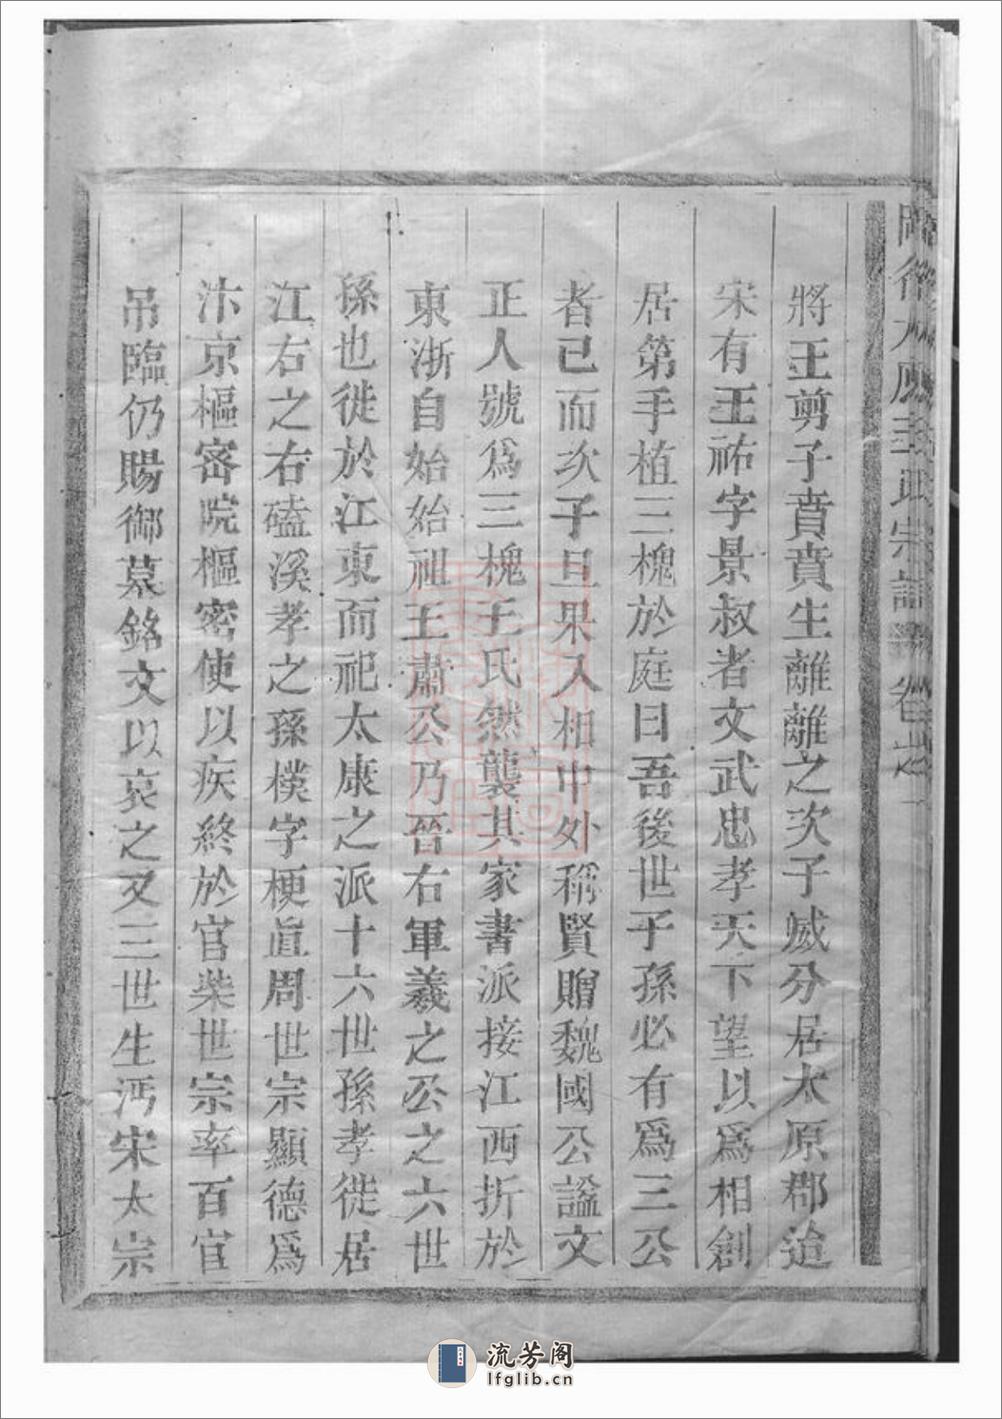 將王剪子賁賁生離離之次子威分居太原郡迨
宋有王祐字景叔者文武忠孝天下望以爲相創
居第手植三槐於庭曰吾後世子孫必有爲三公
者已而次子旦果入相中外稱賢贈魏國公謚文
正人號爲三槐王氏然襲其家書派接江西折於
東浙自始始祖王肅公乃晉右軍羲之公之六世
孫也徙於江東而祀太康之派十六世孫孝徙居
江右之右磕溪孝之孫樸字梗眞周世宗顯德爲
汴京樞密院樞密使以疾終於官柴世宗率百官
吊臨仍賜御墓銘文以哀之又三世生沔宋太宗
王氏宗譜 卷之一
流芳阁
lfglib.cn